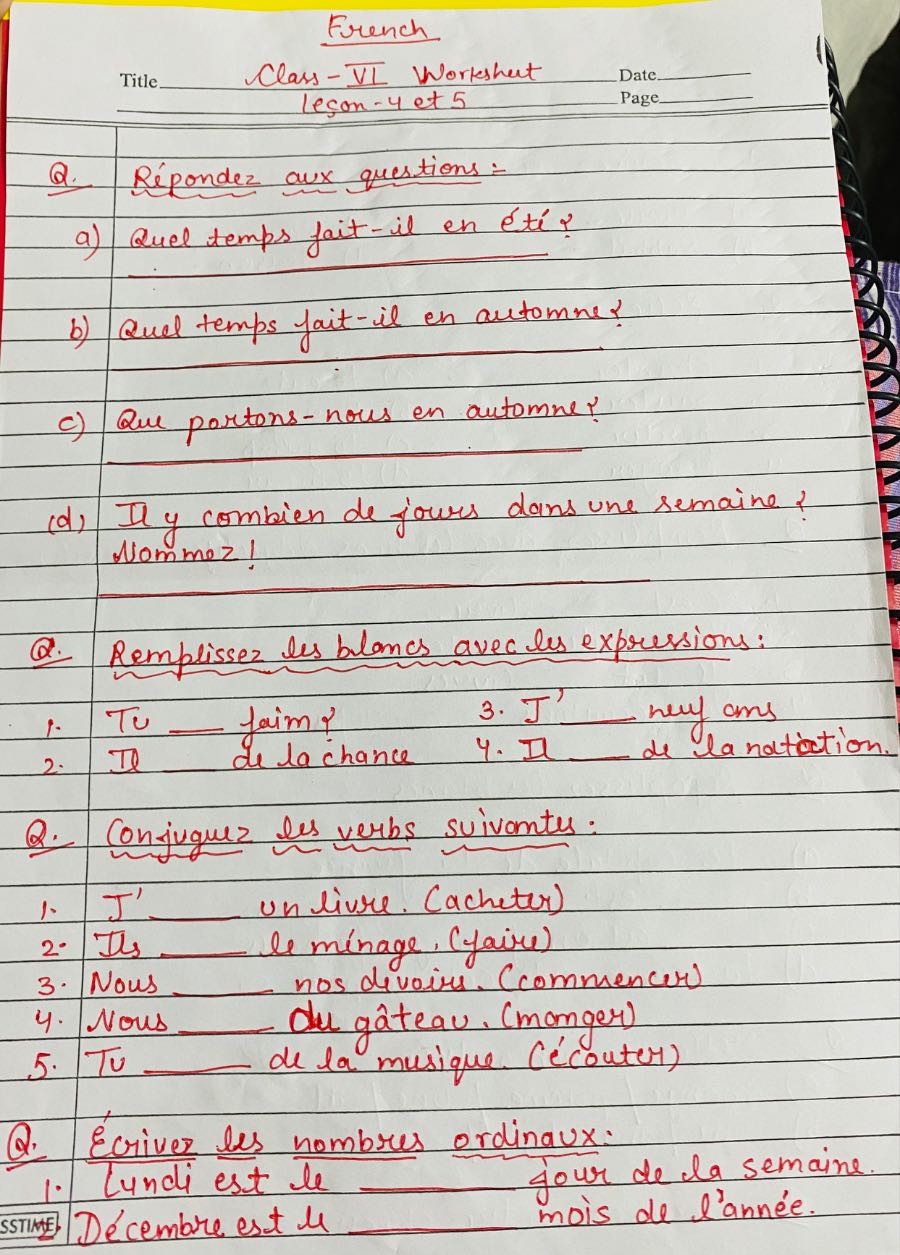 French
Title Class - VI Worksheet Date
Leçon - 4 et 5 Page
Q. Répondez aux questions :-
a) Quel temps fait-il en été ?
b) Quel temps fait-il en automne ?
c) Que portons-nous en automne ?
(d) Il y combien de jours dans une semaine ?
Nommez !
Q. Remplissez les blancs avec les expressions :
1. Tu ____ faim ? 3. J' ____ neuf ans
2. Il ____ de la chance 4. Il ____ de la natation.
Q. Conjuguez les verbs suivants :
1. J' ____ un livre. (acheter)
2. Ils ____ le ménage. (faire)
3. Nous ____ nos devoirs. (commencer)
4. Nous ____ du gâteau. (manger)
5. Tu ____ de la musique. (écouter)
Q. Écrivez les nombres ordinaux :
1. Lundi est le ____ jour de la semaine.
SSTIME 2. Décembre est le ____ mois de l'année.